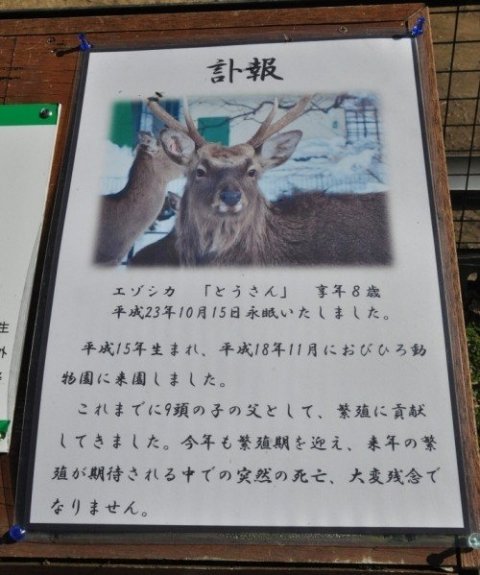 訃報
エゾシカ 「とうさん」 享年8歳
平成23年10月15日永眠いたしました。
平成15年生まれ、平成18年11月におびひろ動
物園に来園しました。
これまでに9頭の子の父として、繁殖に貢献
してきました。今年も繁殖期を迎え、来年の繁
殖が期待される中での突然の死亡、大変残念で
なりません。
生
外